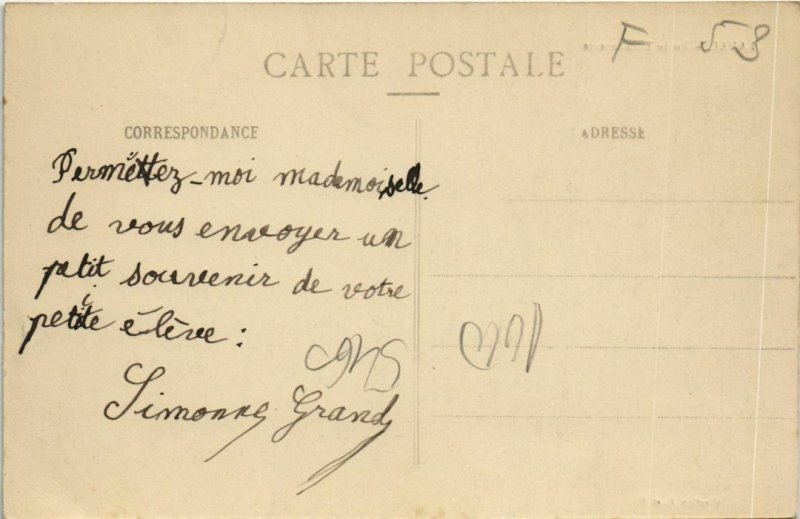 F 53
CARTE POSTALE
CORRESPONDANCE
ADRESSE
Permettez-moi mademoiselle
de vous envoyer un
petit souvenir de votre
petite élève :
Simonne Grand